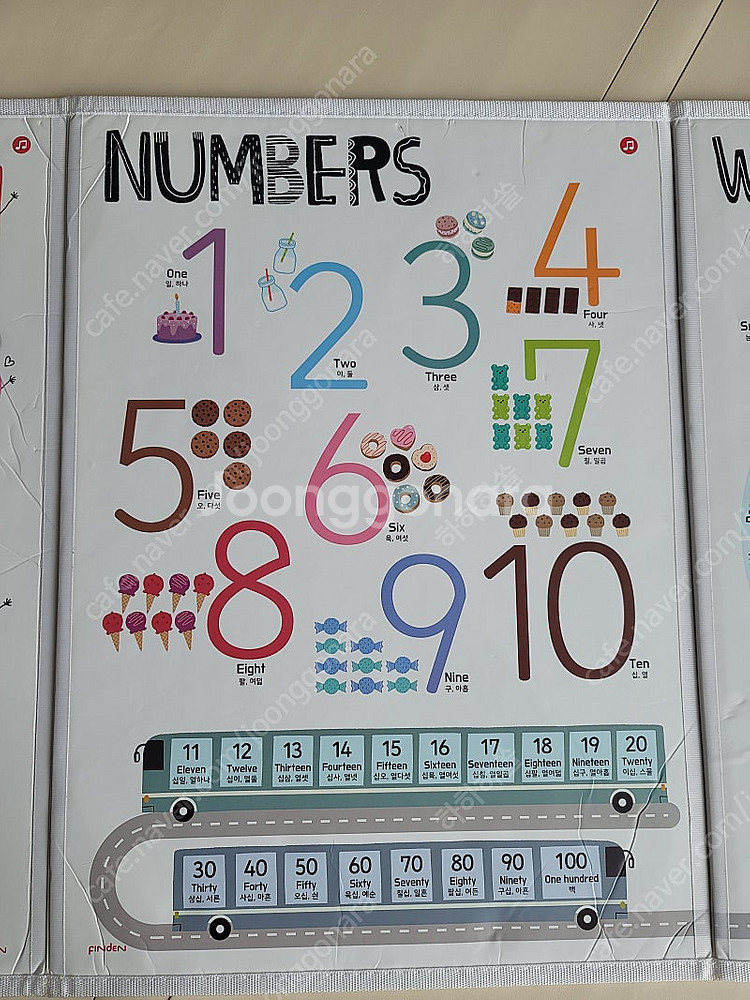 NUMBERS
W
1
One
일, 하나
2
Two
이, 둘
3
Three
삼, 셋
4
Four
사, 넷
5
Five
오, 다섯
6
Six
육, 여섯
7
Seven
칠, 일곱
8
Eight
팔, 여덟
9
Nine
구, 아홉
10
Ten
십, 열
11 12 13 14 15 16 17 18 19 20
Eleven Twelve Thirteen Fourteen Fifteen Sixteen Seventeen Eighteen Nineteen Twenty
십일, 열하나 십이, 열둘 십삼, 열셋 십사, 열넷 십오, 열다섯 십육, 열여섯 십칠, 열일곱 십팔, 열여덟 십구, 열아홉 이십, 스물
30 40 50 60 70 80 90 100
Thirty Forty Fifty Sixty Seventy Eighty Ninety One hundred
삼십, 서른 사십, 마흔 오십, 쉰 육십, 예순 칠십, 일흔 팔십, 여든 구십, 아흔 백
FINDEN
joonggonara
cafe.naver.com/joonggonara